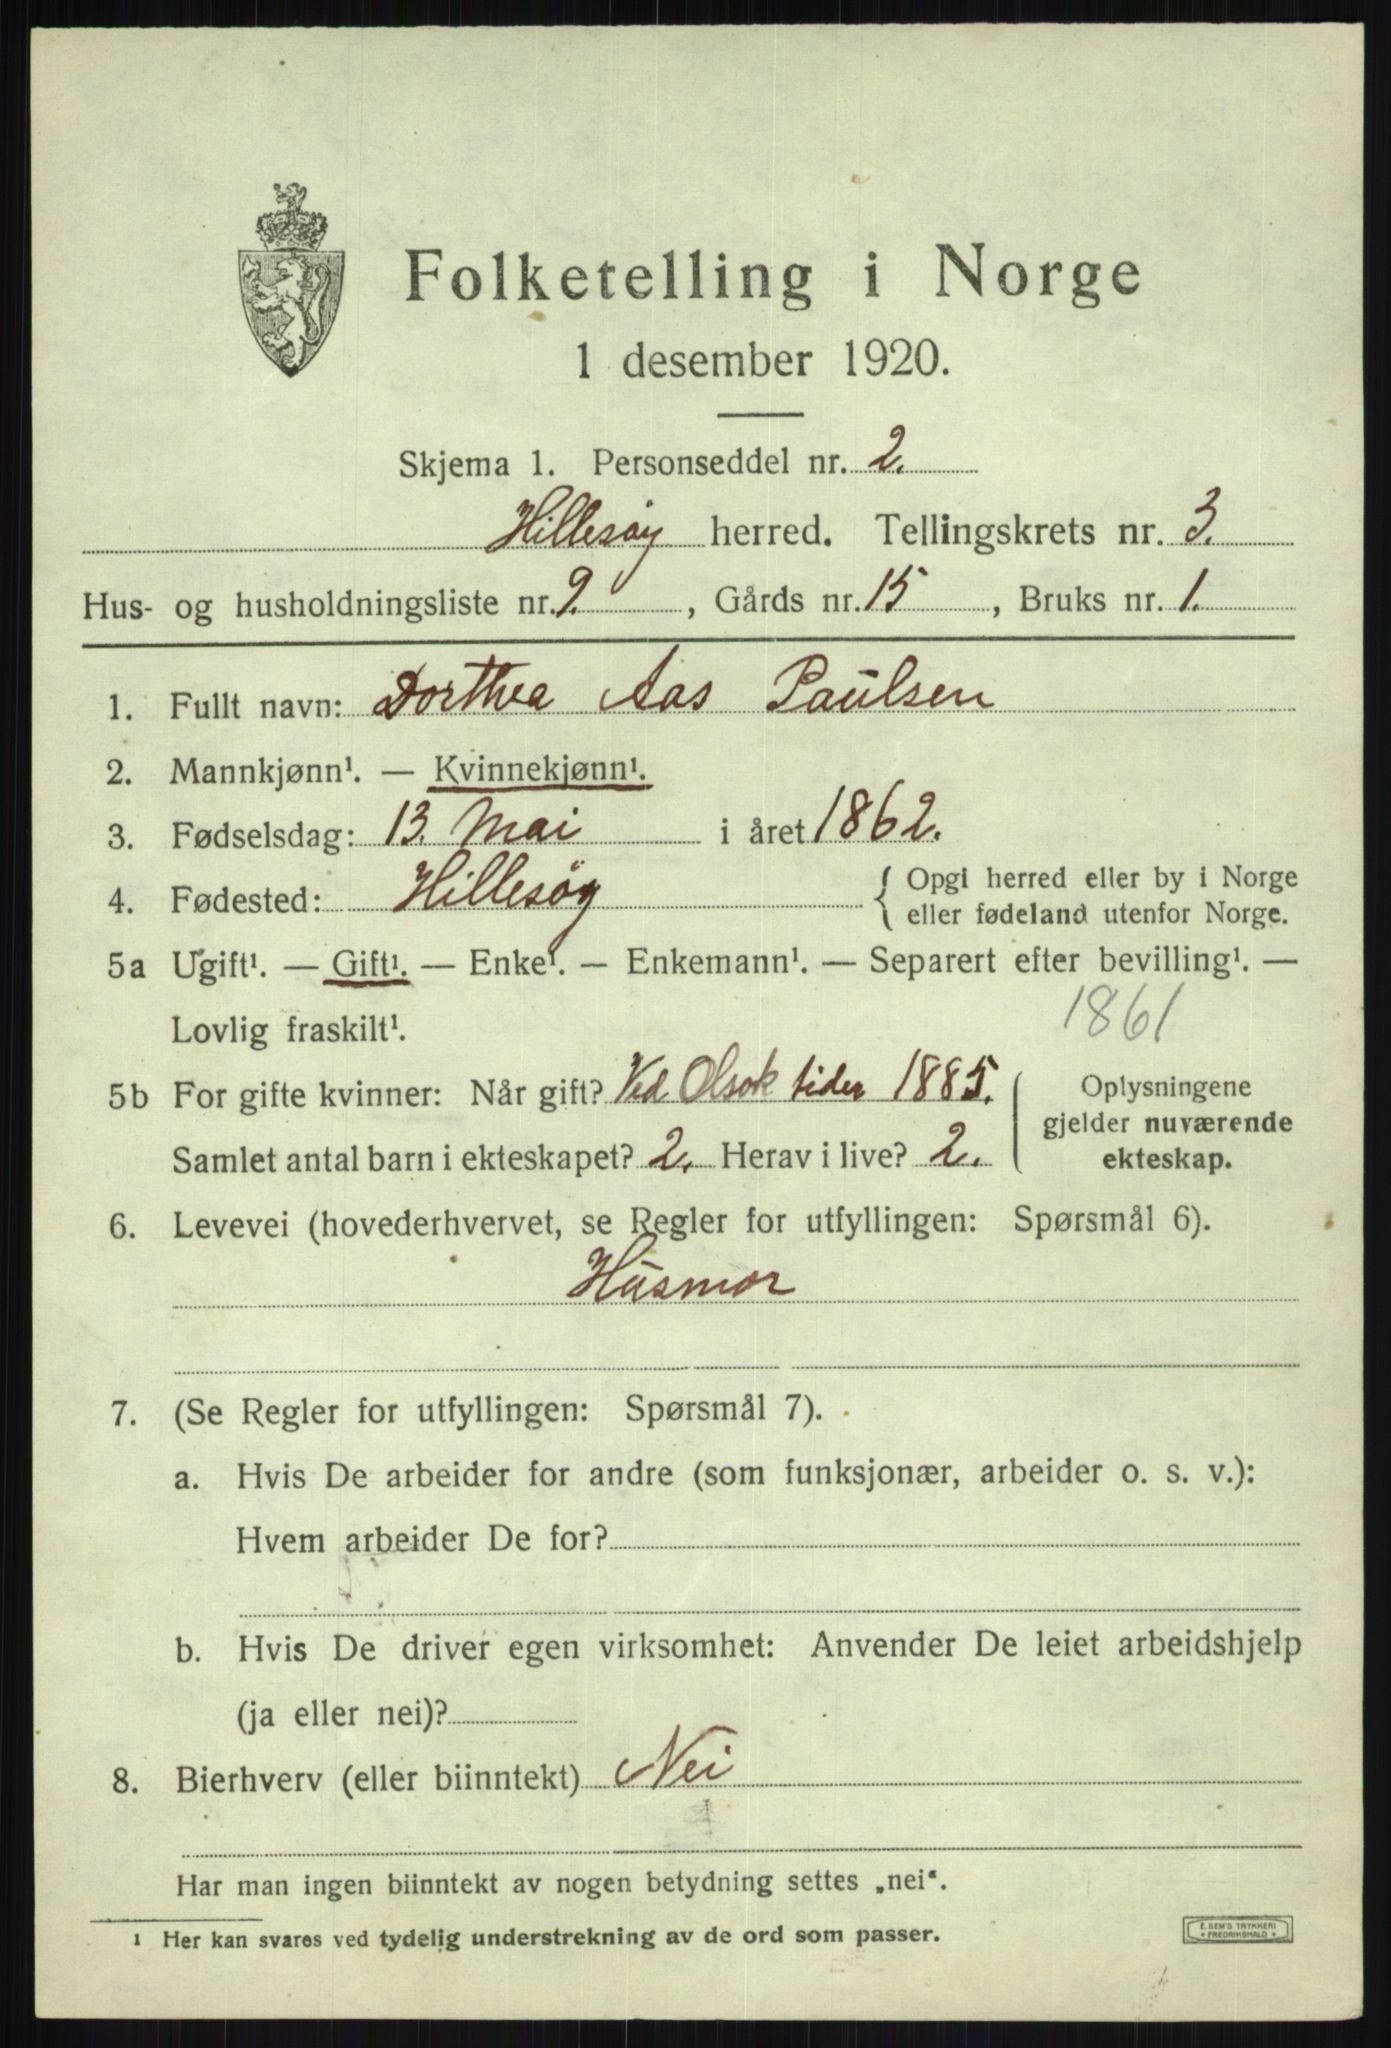 Folketelling i Norge
1 desember 1920.
Skjema 1. Personseddel nr. 2.
Hillesøy herred. Tellingskrets nr. 3.
Hus- og husholdningsliste nr. 9. , Gårds nr. 15 , Bruks nr. 1.
1. Fullt navn: Dorthea Aas Paulsen
2. Mannkjønn¹. — Kvinnekjønn¹.
3. Fødselsdag: 13. Mai i året 1862.
4. Fødested: Hillesøy { Opgi herred eller by i Norge
eller fødeland utenfor Norge.
5a Ugift¹. — Gift¹. — Enke¹. — Enkemann¹. — Separert efter bevilling¹. —
Lovlig fraskilt¹. 1861
5b For gifte kvinner: Når gift? Ved Olsok tider 1885. Oplysningene
gjelder nuværende
Samlet antal barn i ekteskapet? 2. Herav i live? 2. ekteskap.
6. Levevei (hovederhvervet, se Regler for utfyllingen: Spørsmål 6).
Husmor
7. (Se Regler for utfyllingen: Spørsmål 7).
a. Hvis De arbeider for andre (som funksjonær, arbeider o. s. v.):
Hvem arbeider De for?
b. Hvis De driver egen virksomhet: Anvender De leiet arbeidshjelp
(ja eller nei)?
8. Bierhverv (eller biinntekt) Nei
Har man ingen biinntekt av nogen betydning settes „nei“.
¹ Her kan svares ved tydelig understrekning av de ord som passer.
E. SEM'S TRYKKERI
* FREDRIKSHALD *